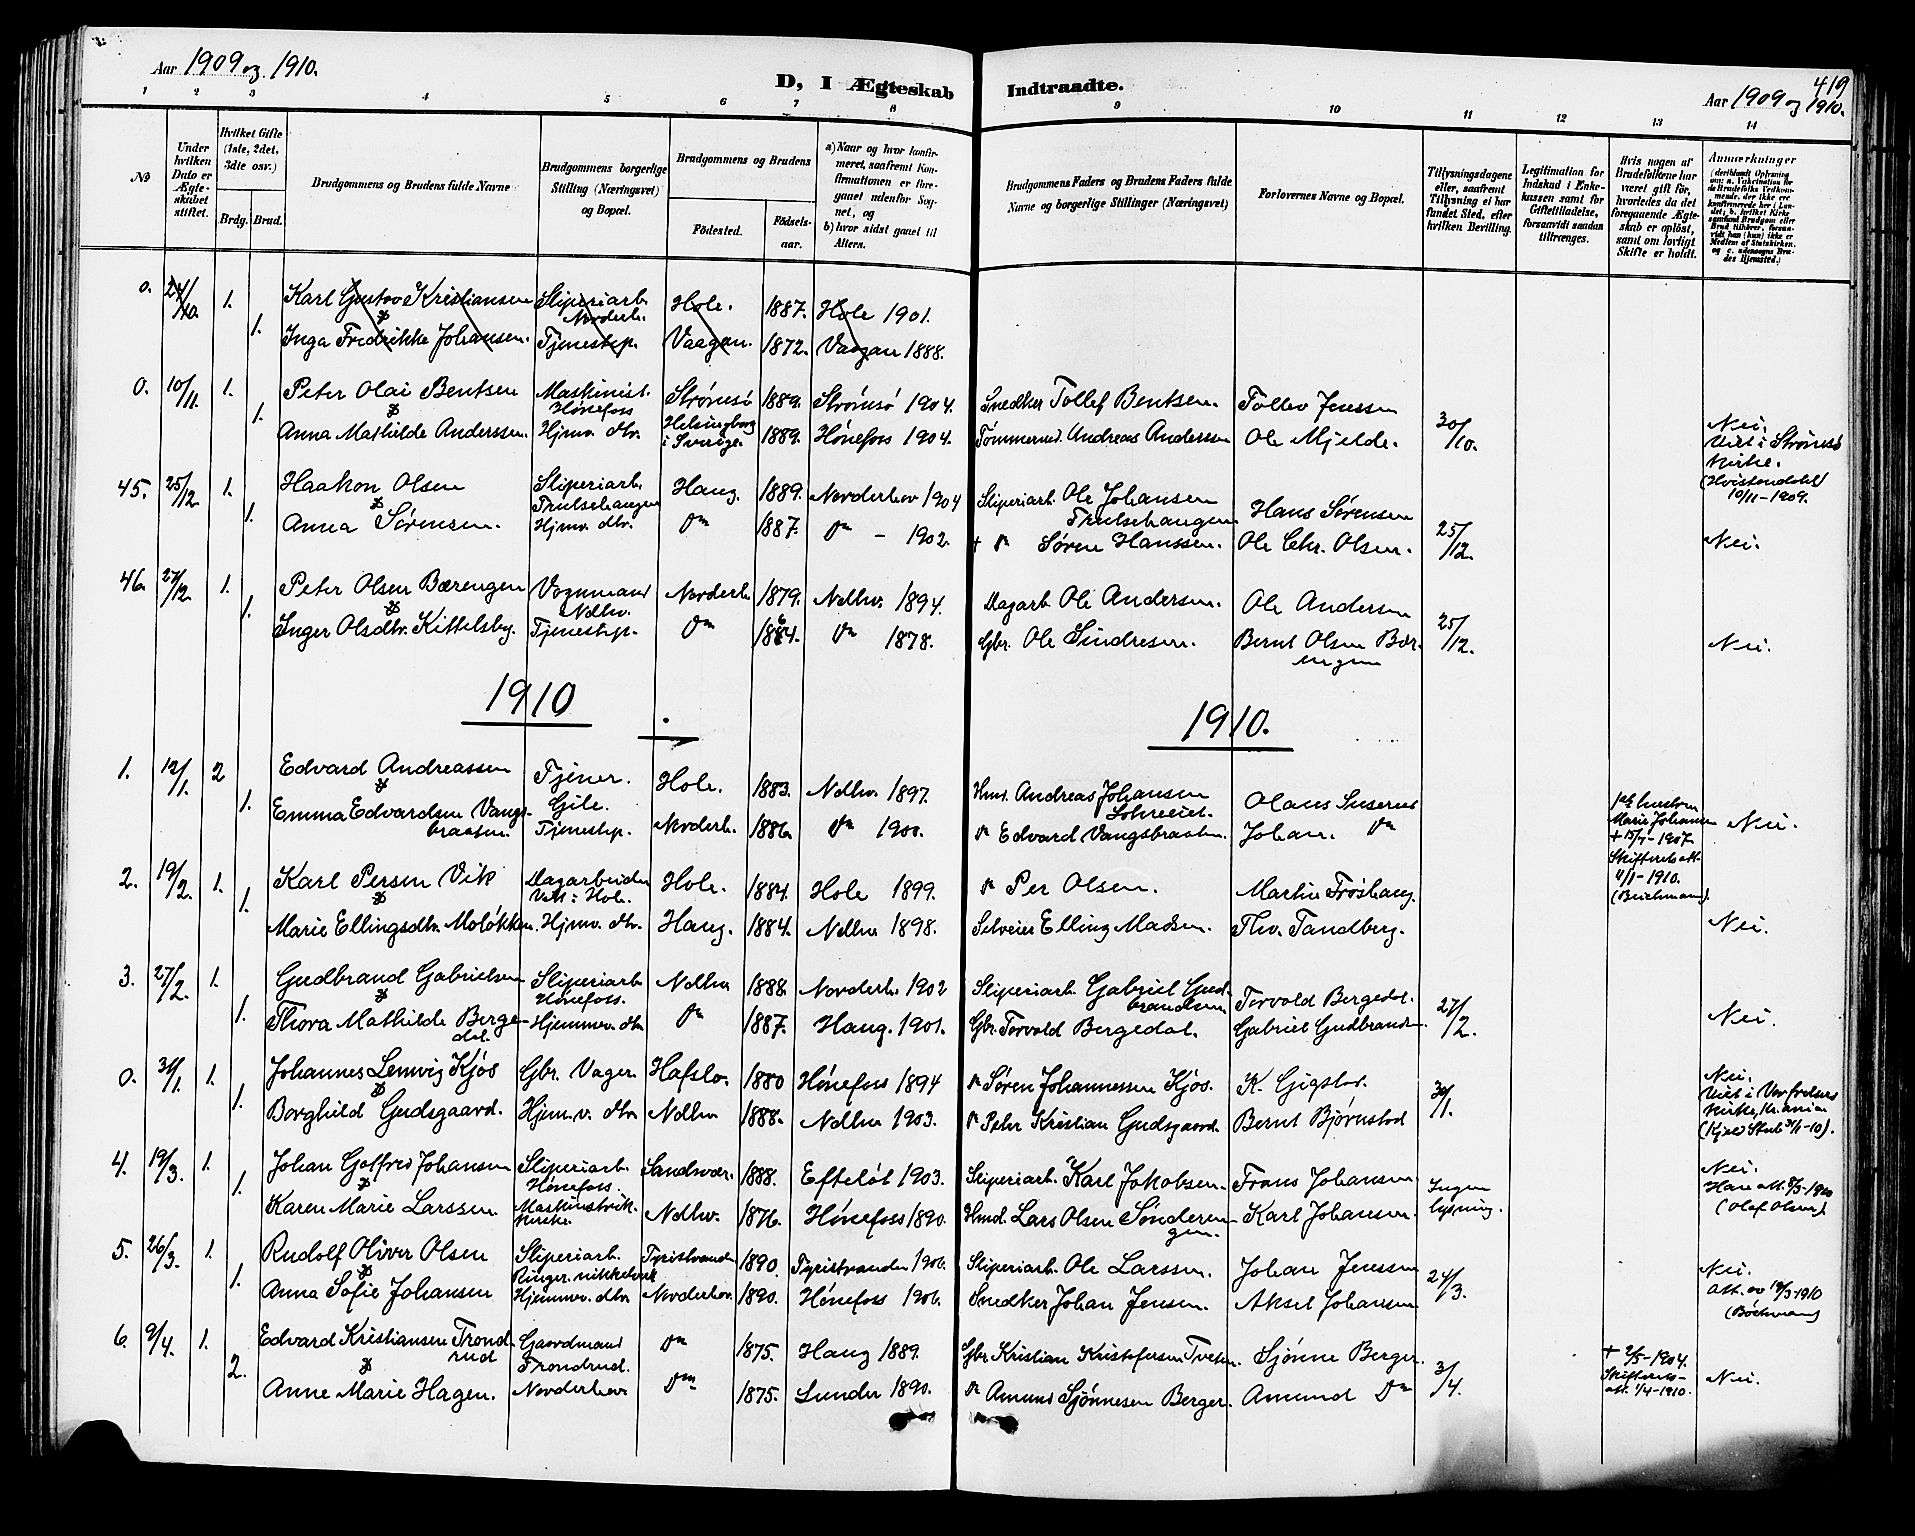 Aar 1909 og 1910.
D, I Ægteskab Indtraadte.
419
Aar 1909 og 1910.
1 2 3 4 5 6 7 8 9 10 11 12 13 14
No
Under hvilken Dato er Ægteskabet stiftet.
Hvilket Gifte (1ste, 2det, 3die osv.)
Brdg. Brud.
Brudgommens og Brudens fulde Navne
Brudgommens borgerlige Stilling (Næringsvei) og Bopæl.
Brudgommens og Brudens
Födested. Födselsaar.
a) Naar og hvor konfirmeret, saafremt Konfirmationen er foregaaet udenfor Sognet, og
b) hvor sidst gaaet til Alters.
Brudgommens Faders og Brudens Faders fulde Navne og borgerlige Stillinger (Næringsvei)
Forlovernes Navne og Bopæl.
Tillysningsdagene eller, saafremt Tillysning ei har fundet Sted, efter hvilken Bevilling.
Legitimation for Indskud i Enkekassen samt for Giftetilladelse, forsaavidt saadan tiltrænges.
Hvis nogen af Brudefolkene har været gift før, hvorledes da det foregaaende Ægteskab er oplöst, samt om lovligt Skifte er holdt.
Anmærkninger
0. 24/10. 1. Karl Gustav Kristiansen Sliperiarb. Norderh. Hole. 1887. Hole 1901.
1. Inga Fredrikke Johansen. Tjenestep. Vaagan. 1872. Vaagan 1888.
0. 10/11. 1. Peter Olai Bentsen Maskinist. Hönefoss Strömsö 1889. Strömsö 1904. Snedker Tollef Bentsen. Tollev Jenssen 30/10.
1. Anna Mathilde Anderssen. Hjmv. dtr. Helsingborg i Sverige. 1889. Hönefoss 1904. Andreas Anderssen Ole Mjelde. Nei. Viet i Strömsö Kirke. 10/11-1909.
45. 25/12 1. Haakon Olsen Sliperiarb. Haug. 1889. Norderhov 1904 Sliperiarb. Ole Johansen Hans Sörensen 25/12.
1. Anna Sörensen. Hjmv. dtr. Dº 1887. Dº - 1902. + Dº Sören Hanssen. Ole Chr. Olsen. Nei.
46. 27/12. 1. Peter Olsen Bærengen Vognmand Ndhv. Norderh. 1879. Ndhv. 1894. Dagarb. Ole Andersen. Ole Andersen 25/12.
1. Inger Olsdtr. Kittelsby. Tjenestep. Dº 1884. Dº 1878. Gbr. Ole Sindresen. Bernt Olsen Bærengen Nei.
1910
1910.
1. 12/1. 2 Edvard Andreassen Tjener. Gile. Hole. 1883. Ndhv. 1897. Hmd. Andreas Johansen Olaus
1. Emma Edvardsen Vangsbraaten. Tjenestep. Norderh. 1886. Dº 1900. Dº Edvard Vangsbraaten. Johan. Dº Marie Johansen + 15/7-1907. Skifteretsatt. 4/1-1910. Nei.
2. 19/2. 1. Karl Persen Vik Dagarbeider Vik i Hole. Hole. 1884. Hole 1899. Dº Per Olsen. Martin Fröshaug.
1. Marie Ellingsdtr. Molökken. Hjmv. dtr. Haug. 1884. Ndhv 1898. Selveier Elling Madsen. Thv. Tandberg. Nei.
3. 27/2. 1. Gudbrand Gabrielsen Sliperiarb. Hönefoss. Ndhv 1888. Norderh. 1902 Sliperiarb. Gabriel Gudbrandsen Torvald Bergedal. 27/2.
1. Thora Mathilde Bergedal. Hjemmev. dtr. Dº 1887. Haug. 1901. Gbr. Torvald Bergedal. Gabriel Gudbrandsen Nei.
0. 31/1. 1. Johannes Lemvig Kjös Gbr. Vager. Hafslo. 1880 Hönefoss 1894 Dº Sören Johannessen Kjös. K. Gigstad. 30/1.
1. Borghild Gudsgaard. Hjem.v. dtr. Ndhv 1888. Ndhv 1903. Dº Peter Kristian Gudsgaard. Bernt Björnstad Nei. Viet i Vor frelsers Kirke, Kr.ania (Kjeld Stub 31/1-10).
4. 19/3. 1. Johan Gotfred Johansen Sliperiarb. Hönefoss. Sandsvær. 1888. Efteløt 1903. Sliperiarb. Karl Jakobsen. Frans Johansen Ingen lysning.
1. Karen Marie Larssen. Ndhv. 1876. Hönefoss 1890. Hmd. Lars Olsen Sønderengen. Karl Johansen. Nei. (Olaf Olsen)
5. 26/3. 1. Rudolf Oliver Olsen Sliperiarb. Ringer. nikkelverk Tyristranden 1890. Tyristranden 1906. Sliperiarb. Ole Larssen. Johan Jenssen 24/3.
1. Anna Sofie Johansen Hjemmev. dtr. Norderhov. 1890. Hönefoss 1906. Snedker Johan Jensen. Aksel Johansen Nei. Att. av 19/3-1910 (Böckmann)
6. 9/4. 1. Edvard Kristiansen Trondrud Gaardmand Trondrud. Dº 1875. Haug 1889. Gbr Kristian Kristofersen Tveten. Sjönne Berger. 3/4.
2. Anne Marie Hagen. Norderhov Dº 1875. Lunder 1890. Dº Amund Sjönnesen Berger. Amund Dº + 2/5-1904. Skifteretsatt. 1/4-1910. Nei.